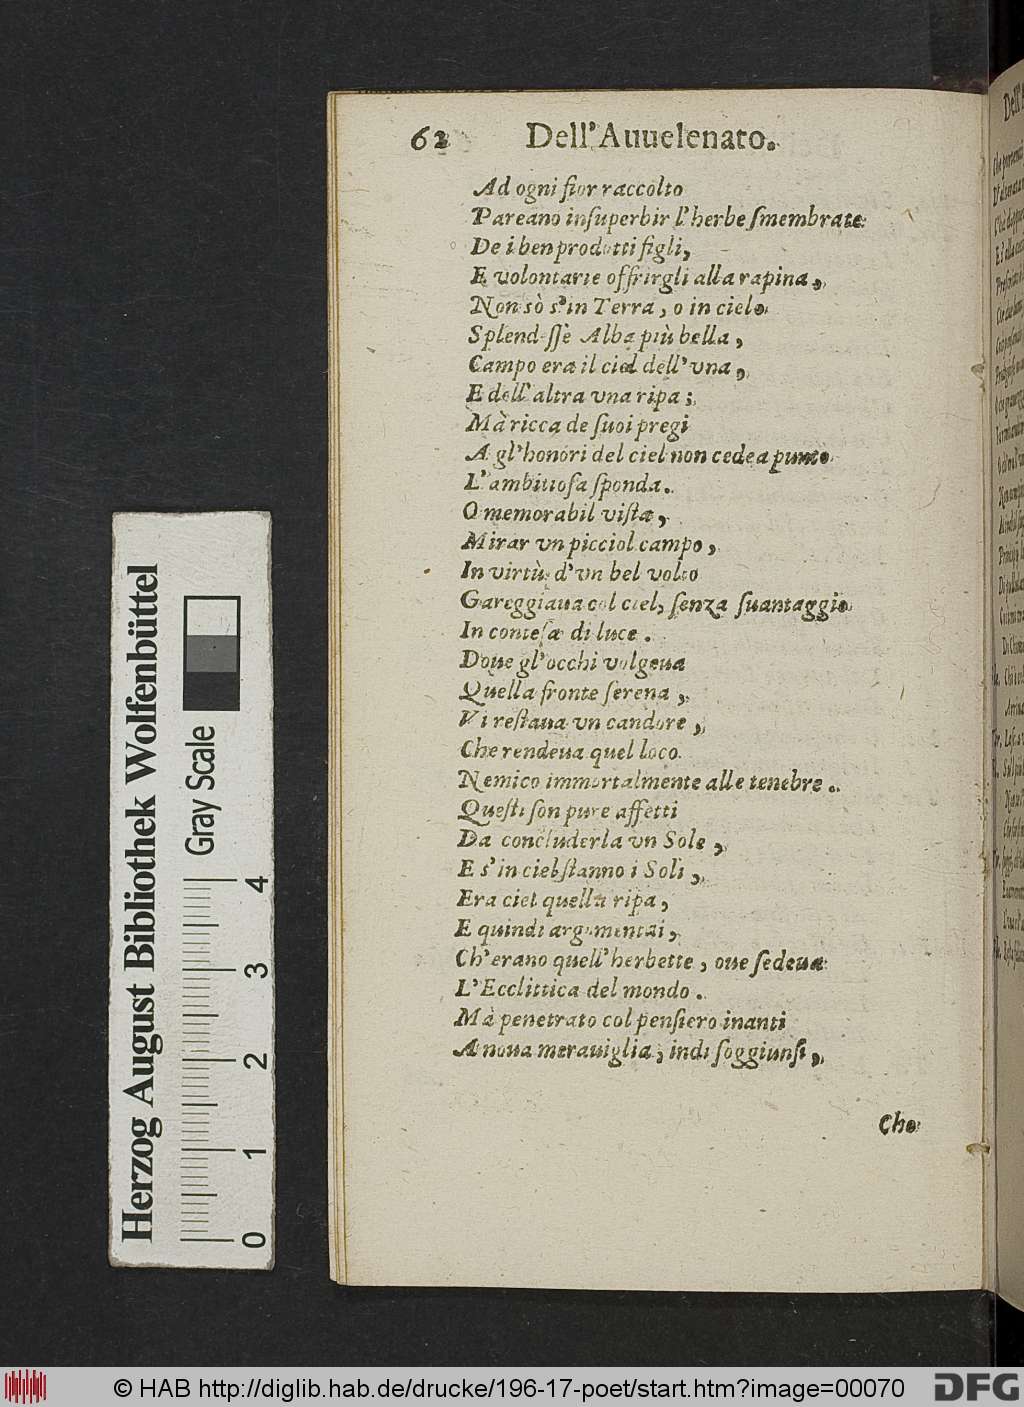 62 Dell'Auuelenato.
Ad ogni fior raccolto
Pareano inſuperbir l'herbe ſmembrate
De i ben prodotti figli,
E volontarie offrirgli alla rapina,
Non sò s'in Terra, o in cielo
Splendeſſè Alba più bella,
Campo era il ciel dell'vna,
E dell'altra vna ripa;
Mà ricca de ſuoi pregi
A gl'honori del ciel non cedea punto
L'ambitioſa ſponda.
O memorabil viſta,
Mirar vn picciol campo,
In virtù d'vn bel volto
Gareggiaua col ciel, ſenza ſuantaggio
In conteſa di luce.
Doue gl'occhi volgeua
Quella fronte ſerena,
Vi reſtaua vn candore,
Che rendeua quel loco
Nemico immortalmente alle tenebre.
Queſti ſon pure affetti
Da concluderla vn Sole,
E s'in ciel ſtanno i Soli,
Era ciel quella ripa,
E quindi argumentai,
Ch'erano quell'herbette, oue ſedeua
L'Ecclittica del mondo.
Mà penetrato col penſiero inanti
A noua merauiglia, indi ſoggiunſi,
Che
Herzog August Bibliothek Wolfenbüttel
Gray Scale
0 1 2 3 4
© HAB http://diglib.hab.de/drucke/196-17-poet/start.htm?image=00070
DFG